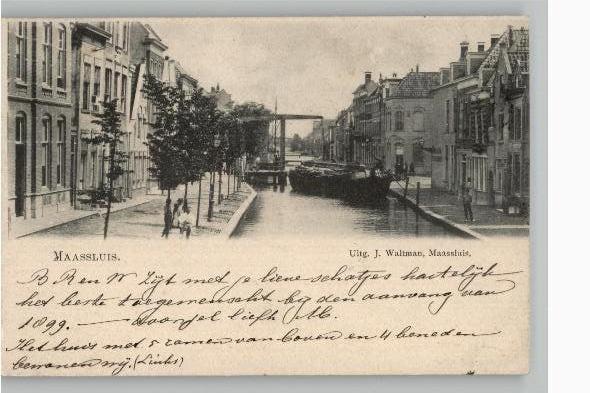 MAASSLUIS.
Uitg. J. Waltman, Maassluis.
B R en W Zijt met je lieve schatjes hartelijk
het beste toegewenscht bij den aanvang van
1899. — door je liefh. M.
Het huis met 5 ramen van boven en 4 beneden
bewonen wij. (Links)